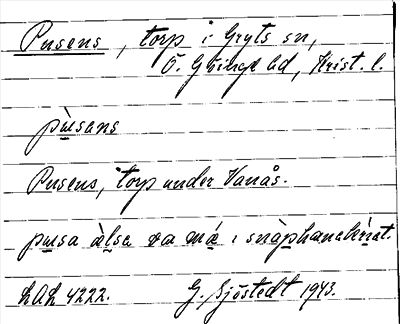 Pusens, torp i Gryts sn,
Ö. Göinge hd, Krist. l.
pùsans
Pusens, torp under Vanås.
pusa àlsa va má i snàphanakriat.
LAL 4222. G. Sjöstedt 1943.